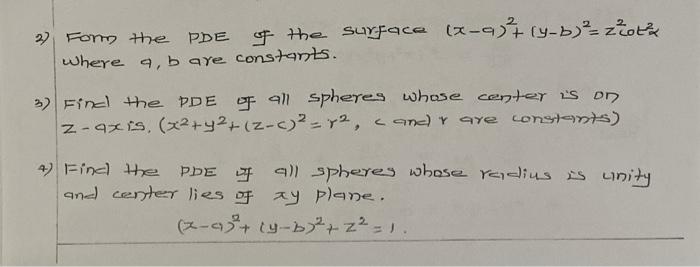 2) Form the PDE of the surface (x-a)²+(y-b)²=z²cot²α
where a, b are constants.
3) Find the PDE of all spheres whose center is on
z-axis. (x²+y²+(z-c)²=r², c and r are constants)
4) Find the PDE of all spheres whose radius is unity
and center lies of xy plane.
(x-a)²+(y-b)²+z²=1.